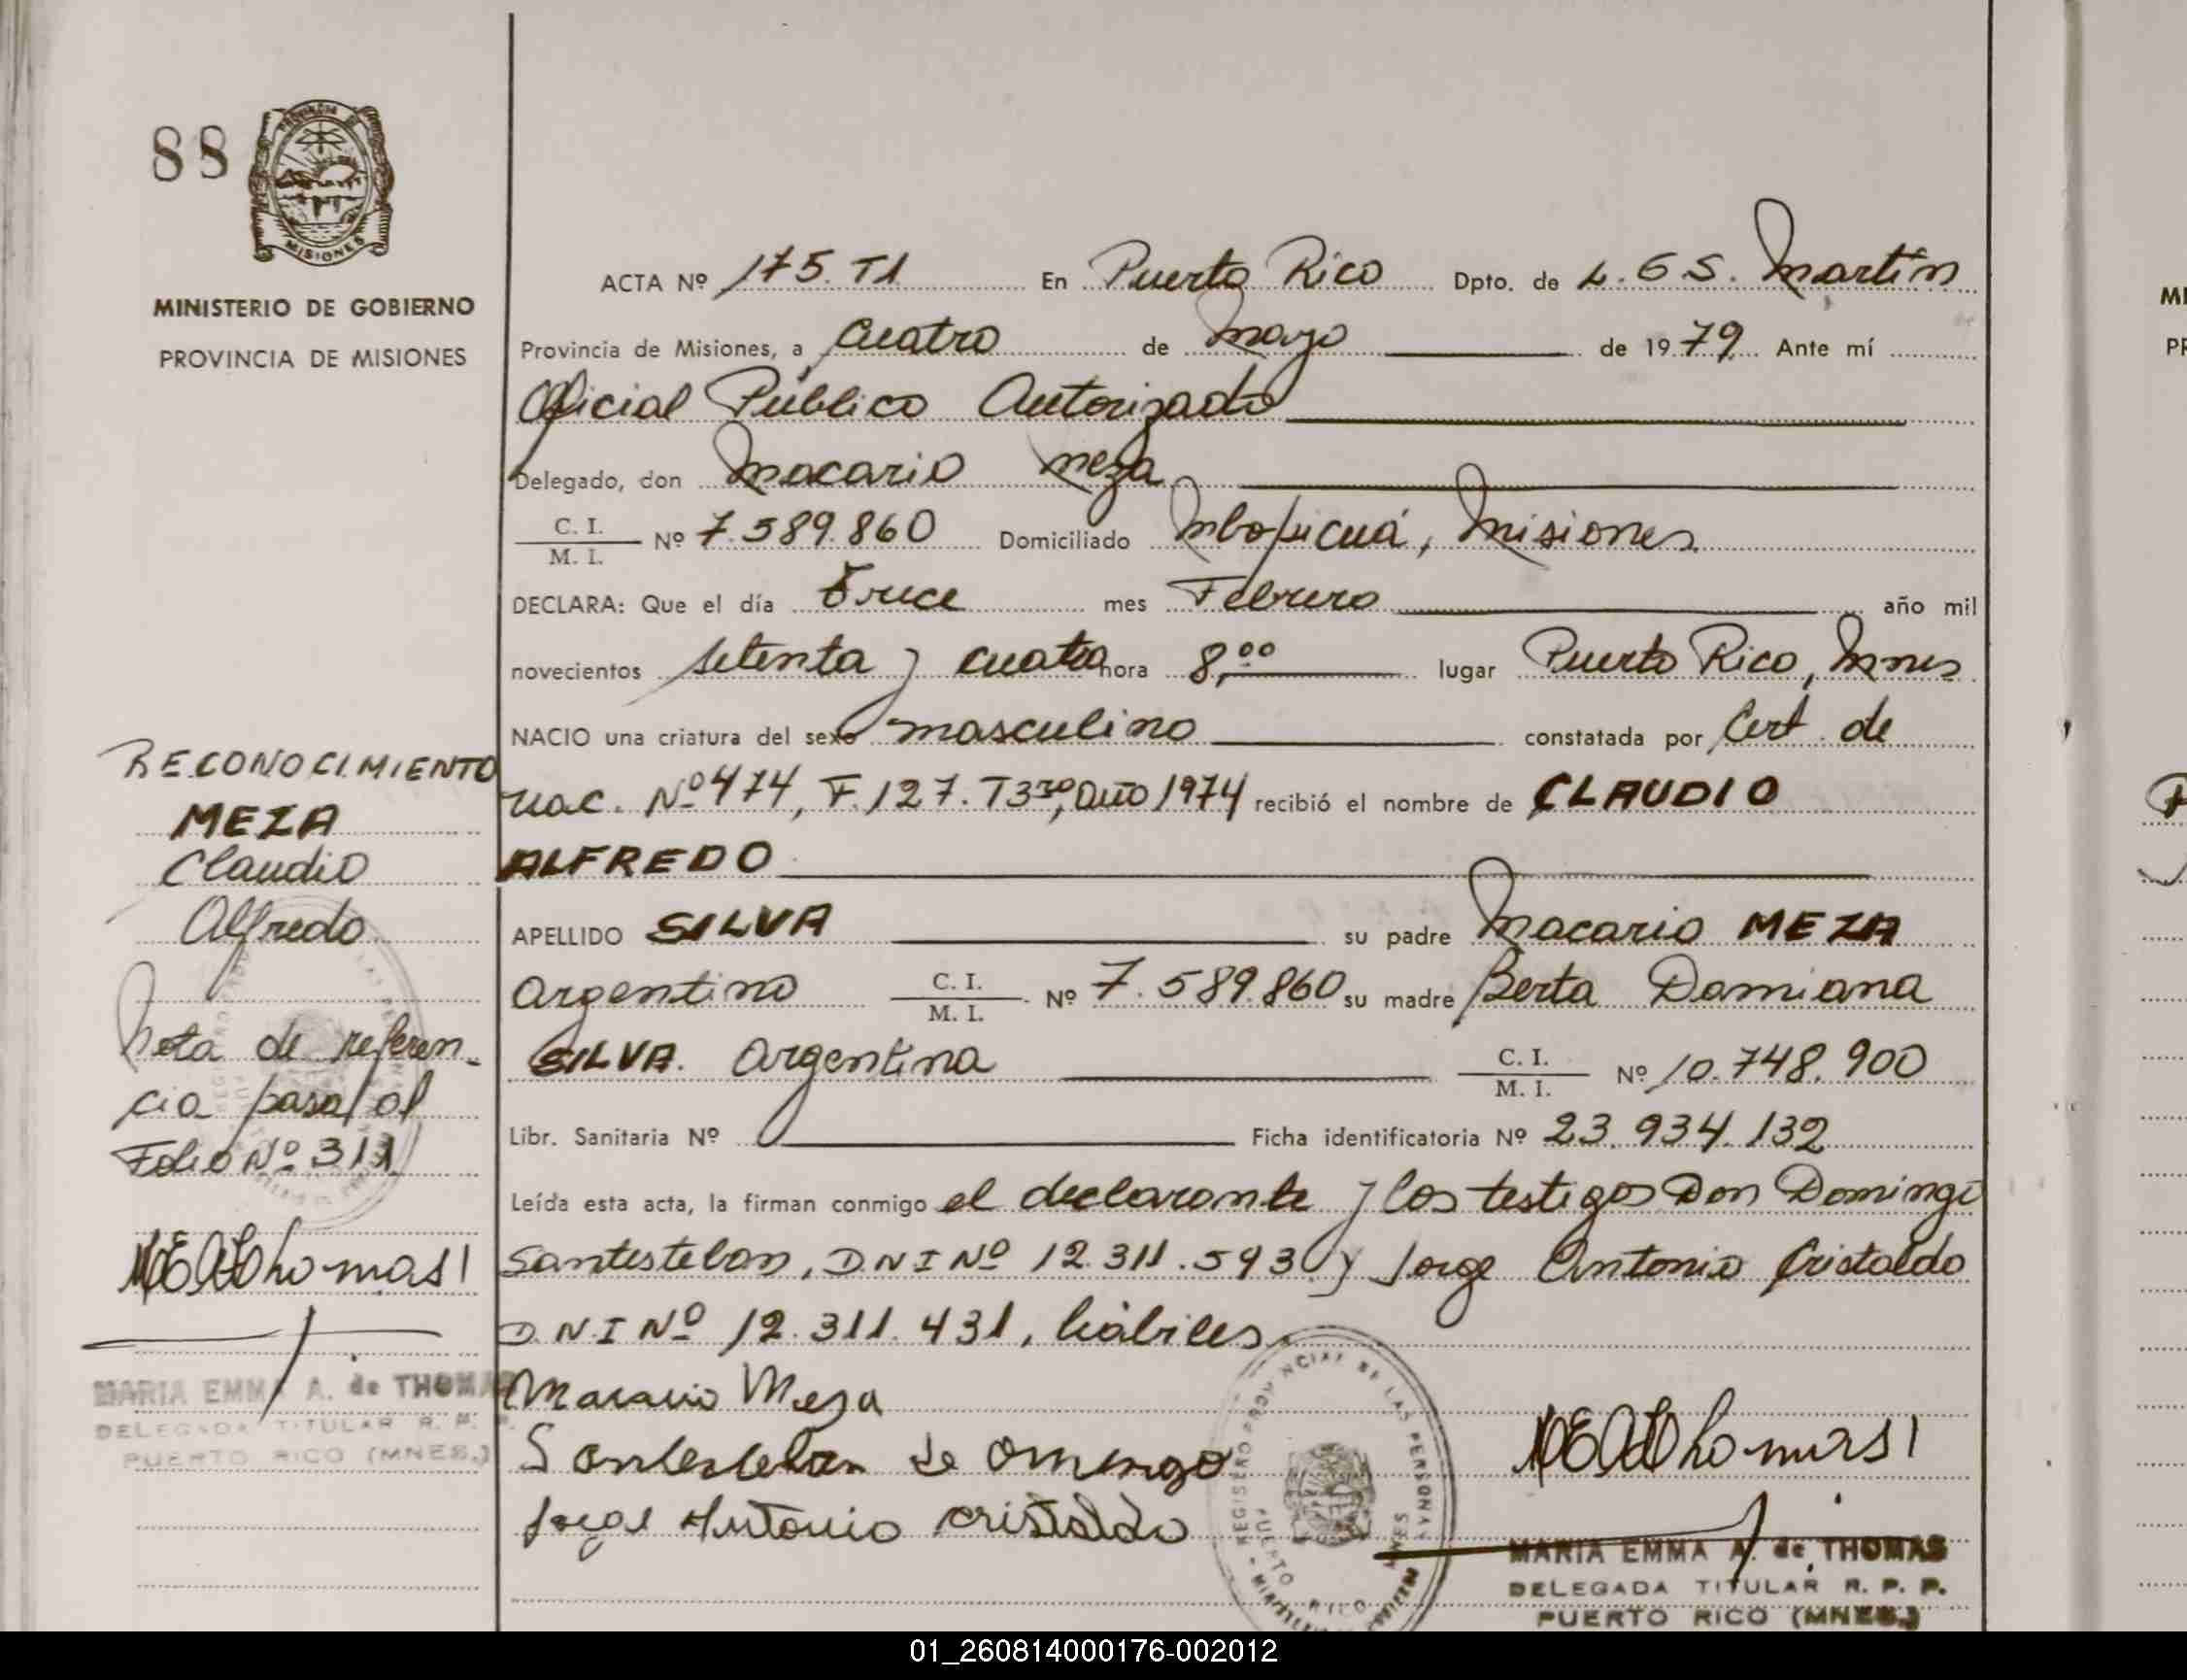 88
PROVINCIA DE
MISIONES
MINISTERIO DE GOBIERNO
PROVINCIA DE MISIONES
ACTA Nº 175. T1 En Puerto Rico Dpto. de L. G S. Martín
Provincia de Misiones, a Cuatro de Mayo de 1979. Ante mí
Oficial Público Autorizado
Delegado, don Macario Meza
C. I.
M. I. Nº 7.589.860 Domiciliado Mbopicuá, Misiones
DECLARA: Que el día Trece mes Febrero año mil
novecientos setenta y cuatro hora 8,00 lugar Puerto Rico, Mnes
NACIO una criatura del sexo masculino constatada por Cert. de
nac. Nº 474, F. 127. T3ro, Año 1974 recibió el nombre de CLAUDIO
ALFREDO
APELLIDO SILVA su padre Macario MEZA
Argentino C. I. M. I. Nº 7.589.860 su madre Berta Damiana
SILVA. Argentina C. I. M. I. Nº 10.748.900
Libr. Sanitaria Nº Ficha identificatoria Nº 23.934.132
Leída esta acta, la firman conmigo el declarante y los testigos Don Domingo
Santesteban, DNI Nº 12.311.593 y Jorge Antonio Cristaldo
D.N.I Nº 12.311.431, hábiles.
Macario Meza
Santesteban Domingo
Jorge Antonio Cristaldo
MEAThomas
MARIA EMMA A. de THOMAS
DELEGADA TITULAR R. P. P.
PUERTO RICO (MNES.)
RECONOCIMIENTO
MEZA
Claudio
Alfredo
Nota de referen-
cia pasa al
Folio Nº 311
MEAThomas
MARIA EMMA A. de THOMAS
DELEGADA TITULAR R. P. P.
PUERTO RICO (MNES.)
REGISTRO PROVINCIAL DE LAS PERSONAS
PUERTO RICO
MI
PR
01_260814000176-002012